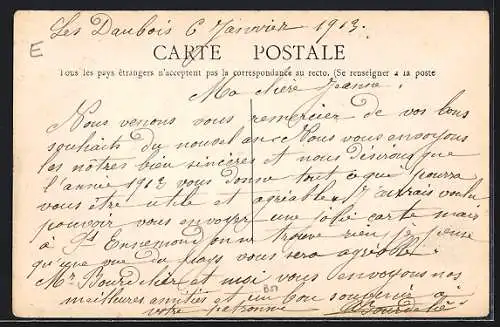 Les Daubois 6 Janvier 1913.
E
CARTE POSTALE
Tous les pays étrangers n'acceptent pas la correspondance au recto. (Se renseigner à la poste
Ma chère Jeanne,
Nous venons vous remercier de vos bons
souhaits du nouvel an ce Nous vous envoyons
les nôtres bien sincères et nous désirons que
l'année 1913 vous donne tout ce que pourra
vous être utile et agréable. J'aurais voulu
pouvoir vous envoyer une jolie carte mais
à St Ennemond on ne trouve rien je pense
qu'une vue du pays vous sera agréable.
Mr Bourdelier et moi vous envoyons nos
meilleures amitiés et un bon souvenir à
votre patronne